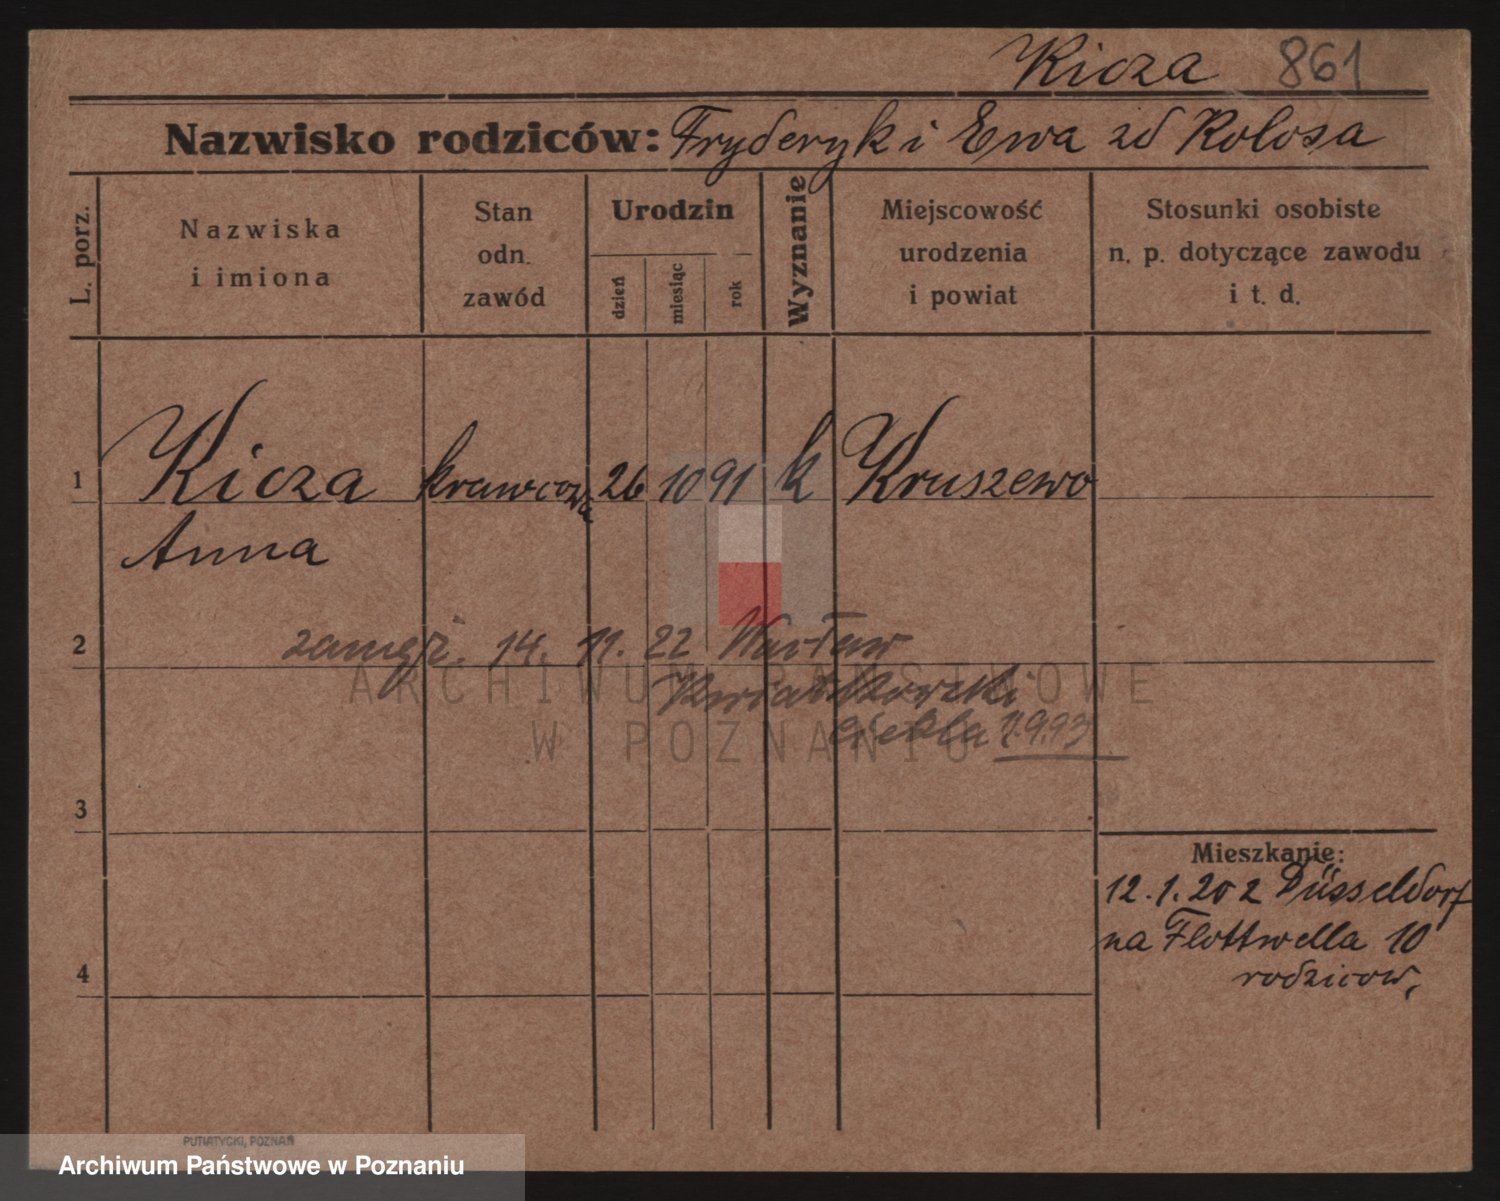 Kicza 861
Nazwisko rodziców: Fryderyk i Ewa zd Kolosa
L. porz.
Nazwiska
i imiona
Stan
odn.
zawód
Urodzin
dzień
miesiąc
rok
Wyznanie
Miejscowość
urodzenia
i powiat
Stosunki osobiste
n. p. dotyczące zawodu
i t. d.
1 Kicza krawcowa 26 10 91 k Kruszewo
Anna
2 zamęż. 14. 11. 22 Wacław
Kwiatkowski
7.9.93
ARCHIWUM PAŃSTWOWE
W POZNANIU
3
Mieszkanie:
12.1.20 z Düsseldorf
na Flottwella 10
4 rodziców,
PUTIATYCKI, POZNAŃ
Archiwum Państwowe w Poznaniu